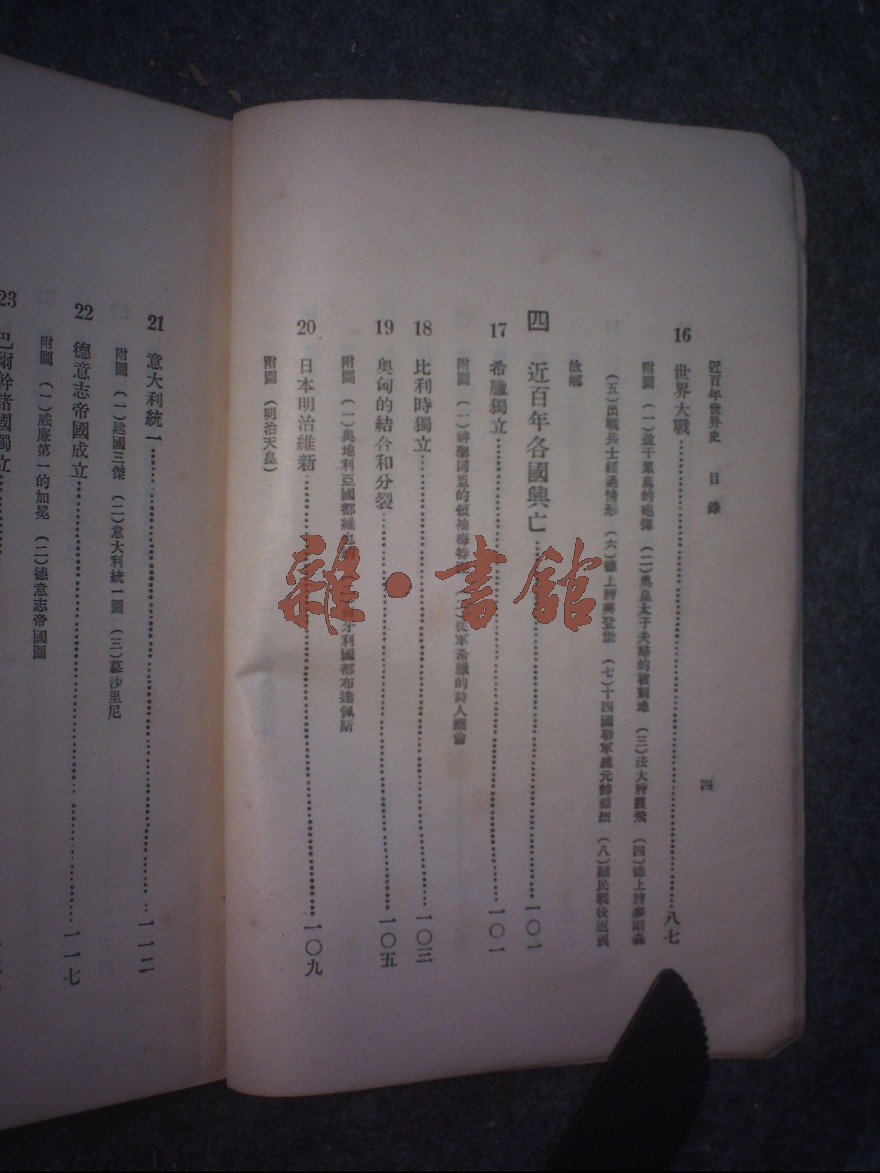 近百年世界史 目錄
四
16 世界大戰 八七
附圖 (一)盈千累萬的砲彈 (二)奧皇太子夫婦的被刺地 (三)法大將霞飛 (四)德上將麥剛森
(五)出戰兵士經過情形 (六)德上將興登堡 (七)十四國聯軍總元帥福煦 (八)難民戰後返
故鄉
四 近百年各國興亡 一〇一
17 希臘獨立 一〇一
附圖 (一)神聖同盟的領袖梅特 (二)從軍希臘的詩人擺倫
18 比利時獨立 一〇三
19 奧匈的結合和分裂 一〇五
附圖 (一)奧地利亞國都維也納 牙利國都布達佩斯
20 日本明治維新 一〇九
附圖 (明治天皇)
21 意大利統一 一一二
附圖 (一)建國三傑 (二)意大利統一圖 (三)墓沙里尼
22 德意志帝國成立 一一七
附圖 (一)威廉第一的加冕 (二)德意志帝國圖
23 巴爾幹諸國獨立
雜·書館